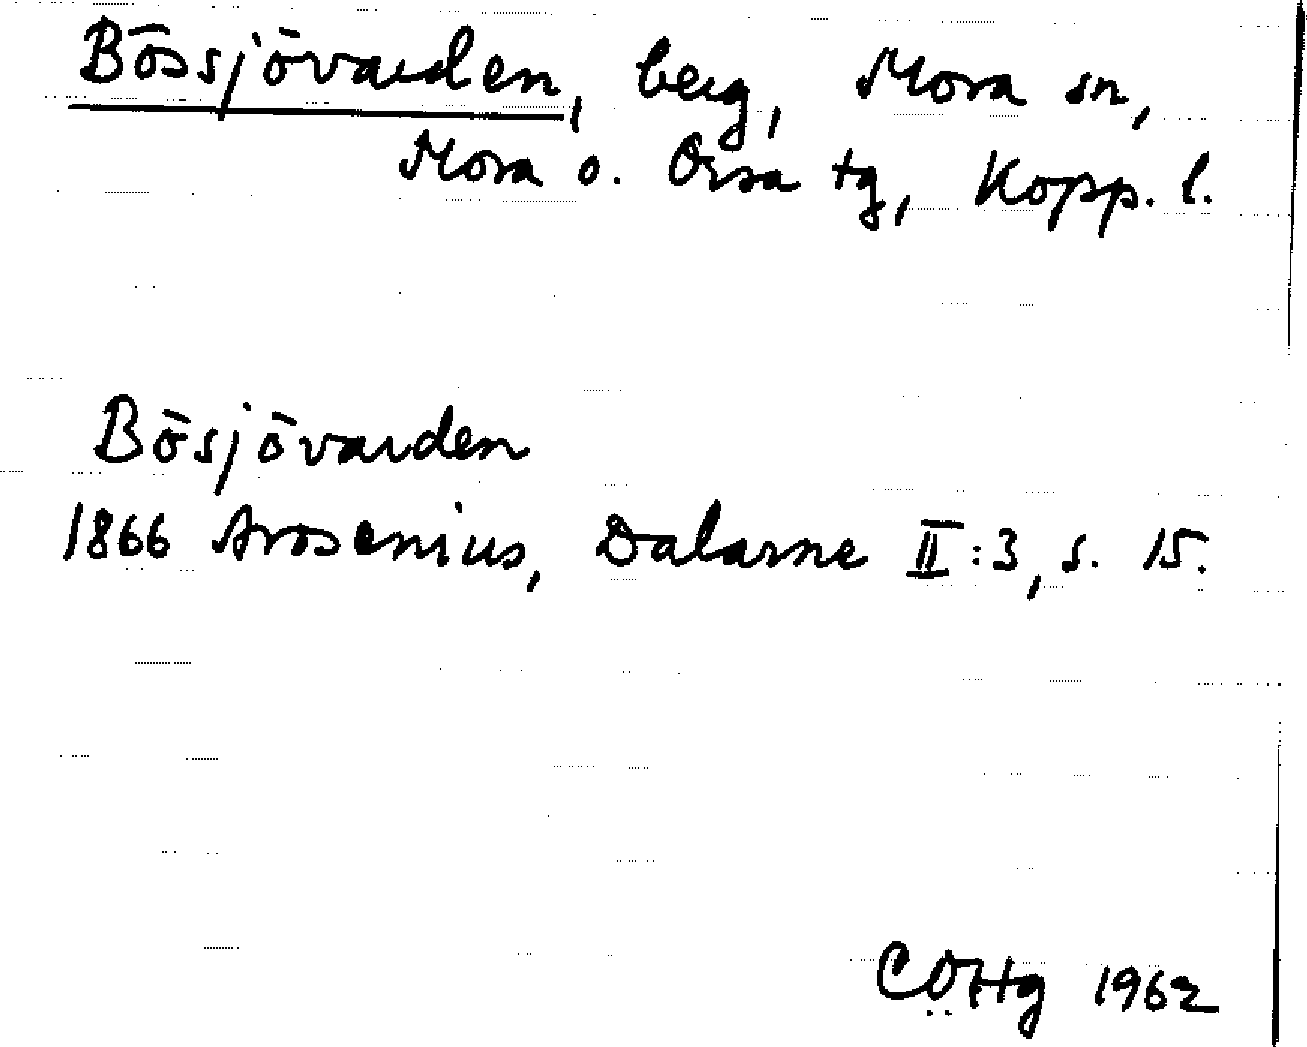 Bössjövarden, berg, Mora sn,
Mora o. Orsa tg, Kopp. l.
Bösjövarden
1866 Arosenius, Dalarne II:3, s. 15.
CÖHg 1962